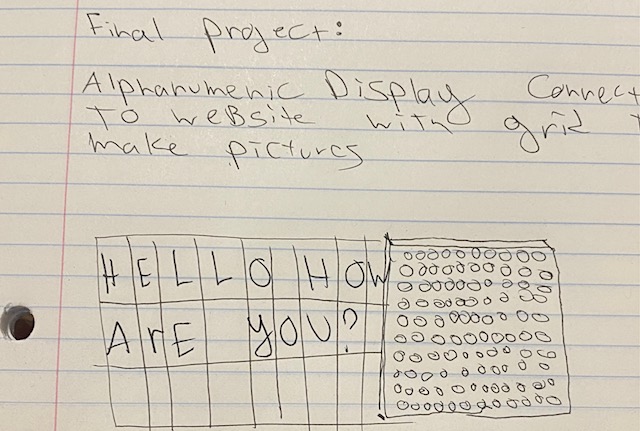 Final project:
Alphanumenic Display Connect
To website with grid
make pictures
HELLO HOW
ArE YOU?